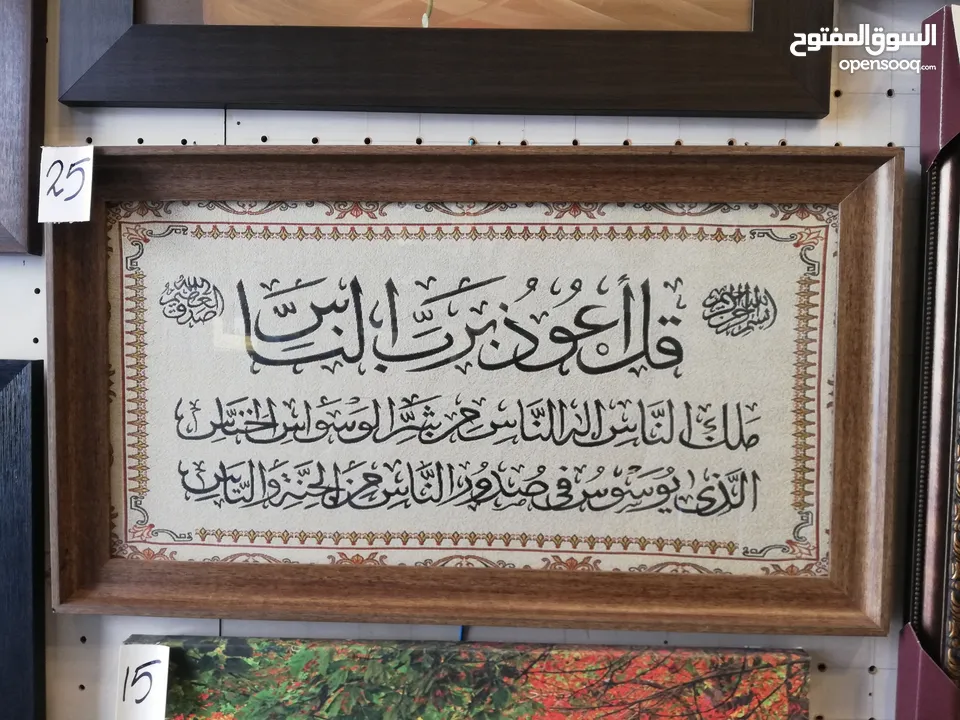 السوق المفتوح
opensooq.com
25
بسم الله الرحمن الرحيم
قل أعوذ برب الناس
صدق الله العظيم
ملك الناس إله الناس من شر الوسواس الخناس
الذي يوسوس في صدور الناس من الجنة والناس
15